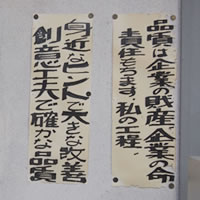 品質は企業の財産、企業の命
責任もちます、私の工程
身近なヒントで大きな改善
創意工夫で確かな品質